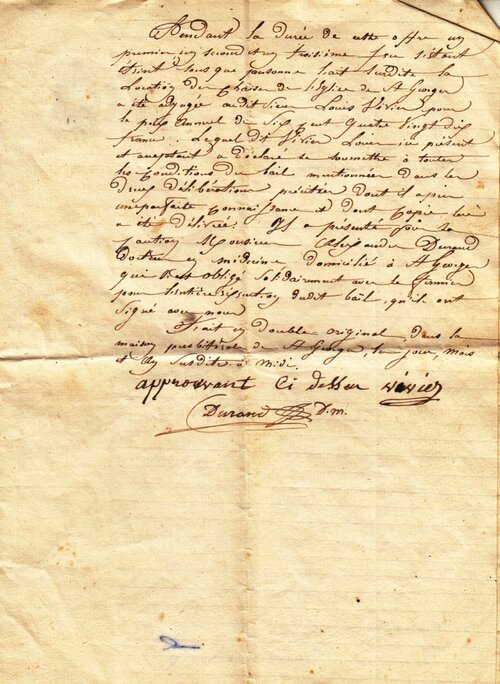 Pendant la durée de cette offre un
premier un second et un troisième feu s'étant
éteint sans que personne l'ait surdite la
Location des chaises de l'Eglise de St George
a été adjugée audit sieur Louis Vivier pour
le prix annuel de six cent quatre vingt dix
francs. Lequel dit Vivier Louis ici présent
et acceptant a déclaré se soumettre à toutes
les Conditions du bail mentionnées dans les
deux délibérations précitées dont il a pris
une parfaite connaissance et dont Copie lui
a été délivrée. Il a présenté pour sa
Caution Monsieur Alexandre Durand
docteur en médecine domicilié à St George
qui s'est obligé solidairement avec le fermier
pour l'entière exécution dudit bail, qu'ils ont
signé avec nous
Fait en double original, dans la
maison presbitérale de St George les jour, mois
et an susdits à midi.
approuvant ci dessu vivier
Durand d.m.